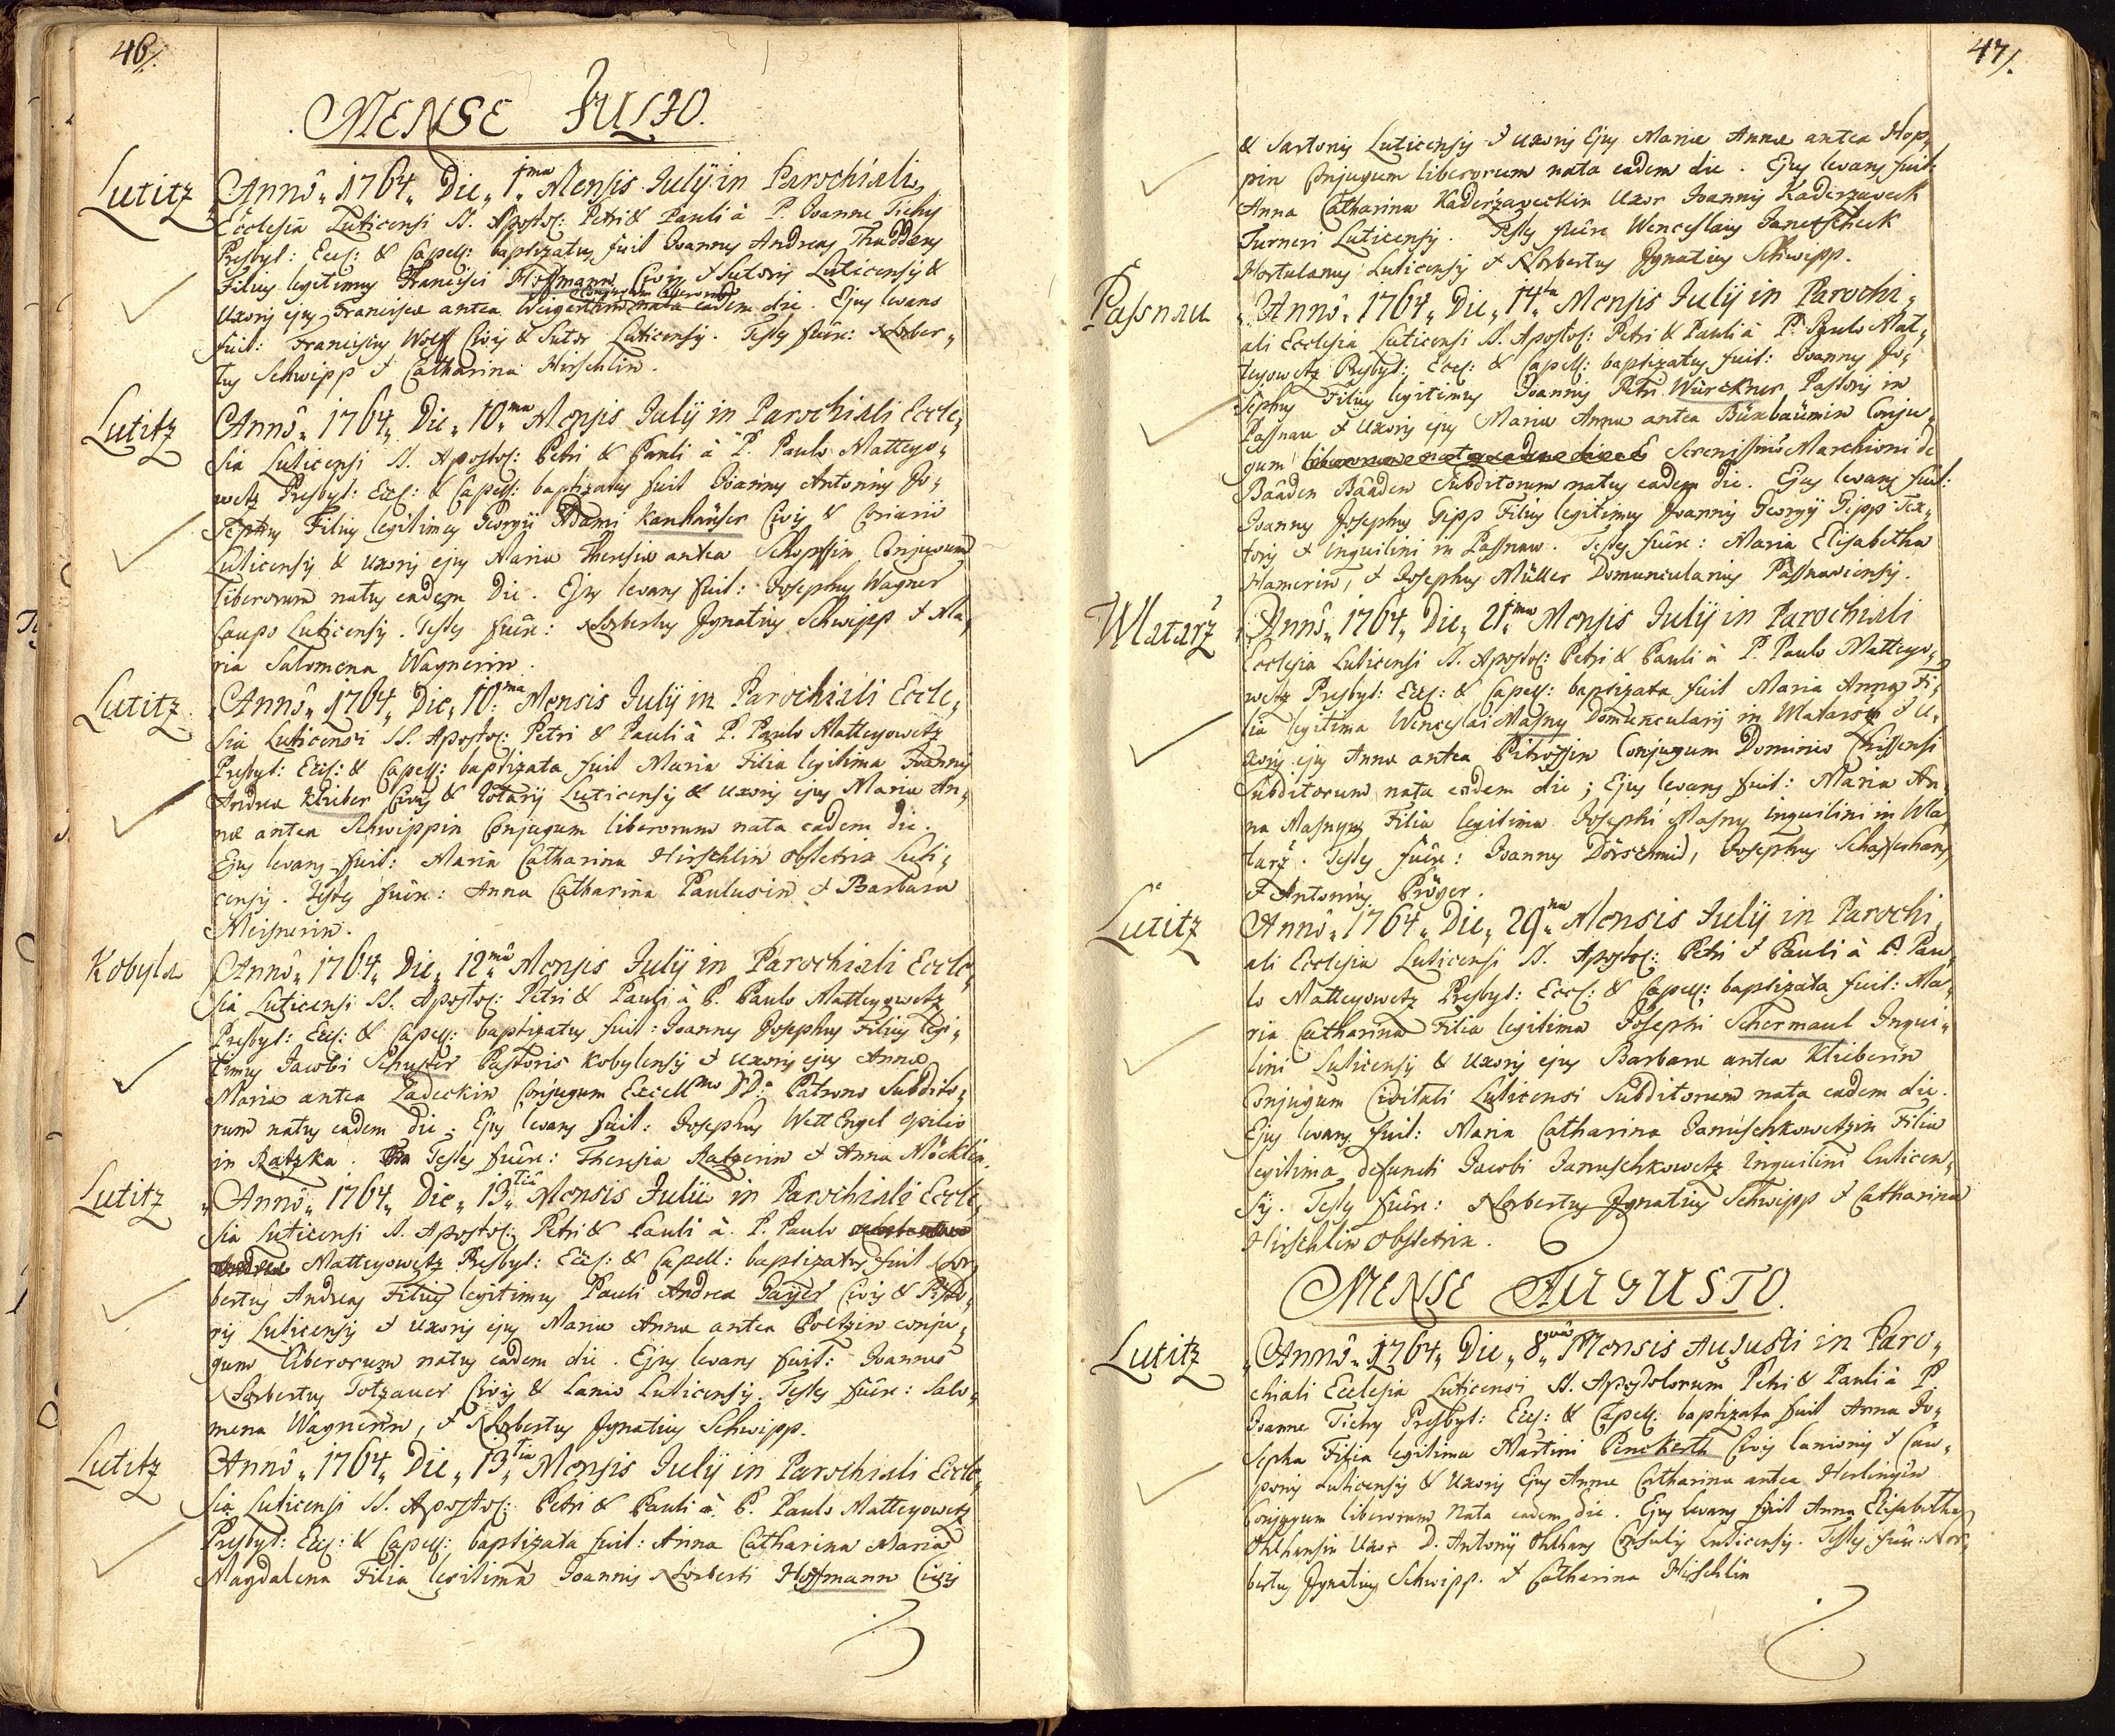 46/.
MENSE JULIO.
Lutitz
Anno 1764 Die 1ma Mensis July in Parochiali
Ecclesia Luticensi SS. Apostol: Petri & Pauli à P. Joanne Tichy
Presbyt: Eccl: & Capell: baptizatus fuit Joannes Andreas Thaddaeus
Filius legitimus Francisci Hoffmann Civis & Sutoris Luticensis &
Uxoris ejus Francisca antea Conjugum liberorum nata eadem die. Ejus levans
fuit: Franciscus Wolff Civis & Sutor Luticensis. Testes fuêre: Norber-
tus Schwipp & Catharina Hirschlin.
Lutitz
Anno 1764 Die 10ma Mensis July in Parochiali Eccle-
sia Luticensi SS. Apostol: Petri & Pauli à P. Paulo Matteyo-
wetz Presbyt: Eccl: & Capell: baptizatus fuit Joannes Antonius Jo-
sephus Filius legitimus Georgii Adami Kanhäuser Civis & Coriarii
Luticensis & uxoris ejus Maria Theresia antea Schopffin Conjugum
liberorum natus eadem Die. Ejus levans fuit: Josephus Wagner
Caupo Luticensis. Testes fuêre: Norbertus Ignatius Schwipp & Ma-
ria Salomena Wagnerin.
Lutitz
Anno 1764 Die 10ma Mensis July in Parochiali Eccle-
sia Luticensi SS. Apostol: Petri & Pauli à P. Paulo Matteyowetz
Presbyt: Eccl: & Capell: baptizata fuit Maria Filia legitima Joannis
Andrea Klieber Civis & Rotarij Luticensis & uxoris ejus Maria An-
nae antea Schwippin Conjugum liberorum nata eadem die.
Ejus levans fuit: Maria Catharina Hirschlin obstetrix Luti-
censis. Testes fuêre: Anna Catharina Paulusin & Barbara
Meisnerin.
Kobyla
Anno 1764 Die 12ma Mensis July in Parochiali Eccle-
sia Luticensi SS. Apostol: Petri & Pauli à P. Paulo Matteyowetz
Presbyt: Eccl: & Capell: baptizatus fuit: Joannes Josephus Filius legi-
timus Jacobi Schuster Pastoris Kobylensis & uxoris ejus Annae
Maria antea Ladeckin Conjugum Excellmo DD. Patrono Subdito-
rum natus eadem die. Ejus levans fuit: Josephus Wett Engel opilio
in Ratzka. Testes fuêre: Theresia Ratzerin & Anna Möcklin.
Lutitz
Anno 1764 Die 13tia Mensis Julii in Parochiali Eccle-
sia Luticensi SS. Apostol: Petri & Pauli à P. Paulo
Matteyowetz Presbyt: Eccl: & Capell: baptizatus fuit Nor-
bertus Andreas Filius legitimus Pauli Andrea Payer Civis & Pisto-
ris Luticensis & uxoris ejus Maria Anna antea Poltzin conju-
gum liberorum natus eadem die. Ejus levans fuit: Joannes
Norbertus Totzauer Civis & Lanio Luticensis. Testes fuêre: Salo-
mena Wagnerin, & Norbertus Ignatius Schwipp.
Lutitz
Anno 1764 Die 13tia Mensis July in Parochiali Eccle-
sia Luticensi SS. Apostol: Petri & Pauli à P. Paulo Matteyowetz
Presbyt: Eccl: & Capell: baptizata fuit: Anna Catharina Maria
Magdalena Filia legitima Joannis Norberti Hoffmann Civis
47/.
& Sartoris Luticensis & uxoris Ejus Maria Anna antea Hop-
pin Conjugum liberorum nata eadem die. Ejus levans fuit:
Anna Catharina Kaderzaveckin Uxor Joannis Kaderzaveck
Turneri Luticensis. Testes fuêre Wenceslaus Janetscheck
Hortulanus Luticensis & Norbertus Ignatius Schwipp.
Passnau
Anno 1764 Die 14ta Mensis July in Parochi-
ali Ecclesia Luticensi SS. Apostol: Petri & Pauli à P. Paulo Mat-
teyowetz Presbyt: Eccl: & Capell: baptizatus fuit: Joannes Jo-
sephus Filius legitimus Joannis Petri Würckner Pastoris in
Passnau & Uxoris ejus Maria Anna antea Buxbaumin Conju-
gum Serenissimo Marchioni de
Baaden Baaden Subditorum natus eadem die. Ejus levans fuit:
Joannes Josephus Gipp Filius legitimus Joannis Georgij Gipp Tex-
toris & inquilini in Passnau. Testes fuêre: Maria Elisabetha
Hamerin, & Josephus Müller Domuncularius Passnaviensis.
Wlatarz
Anno 1764 Die 21ma Mensis July in Parochiali
Ecclesia Luticensi SS. Apostol: Petri & Pauli à P. Paulo Matteyo-
wetz Presbyt: Eccl: & Capell: baptizata fuit Maria Anna Fi-
lia legitima Wenceslai Masny Domuncularij in Wlatarz & U-
xoris ejus Anna antea Pitroffin Conjugum Dominio Chissensi
Subditorum nata eadem die; Ejus levans fuit: Maria An-
na Masnyn Filia legitima Josephi Masny inquilini in Wla-
tarz. Testes fuêre: Joannes Dorschmid, Josephus Schafferhans
& Antonius Pröger.
Lutitz
Anno 1764 Die 29na Mensis July in Parochi-
ali Ecclesia Luticensi SS. Apostol: Petri & Pauli à P. Pau-
lo Matteyowetz Presbyt: Eccl: & Capell: baptizata fuit: Ma-
ria Catharina Filia legitima Josephi Schermaul Inqui-
lini Luticensis & Uxoris ejus Barbara antea Klieberin
Conjugum Civitati Luticensi Subditorum nata eadem die.
Ejus levans fuit: Maria Catharina Januschkowetzin Filia
legitima defuncti Jacobi Januschkowetz Inquilini Luticen-
sis. Testes fuêre: Norbertus Ignatius Schwipp & Catharina
Hirschlin Obstetrix.
MENSE AUGUSTO.
Lutitz
Anno 1764 Die 8va Mensis Augusti in Paro-
chiali Ecclesia Luticensi SS. Apostolorum Petri & Pauli à P.
Joanne Tichy Presbyt: Eccl: & Capell: baptizata fuit Anna Jo-
sepha Filia legitima Martini Penckerth Civis lanionis & Cau-
ponis Luticensis & Uxoris Ejus Anna Catharina antea Herlingin
Conjugum liberorum Nata eadem die. Ejus levans fuit Anna Elisabetha
Uxor D. Antonij Consulis Luticensis. Testes fuêre: Nor-
bertus Ignatius Schwipp. & Catharina Hirschlin